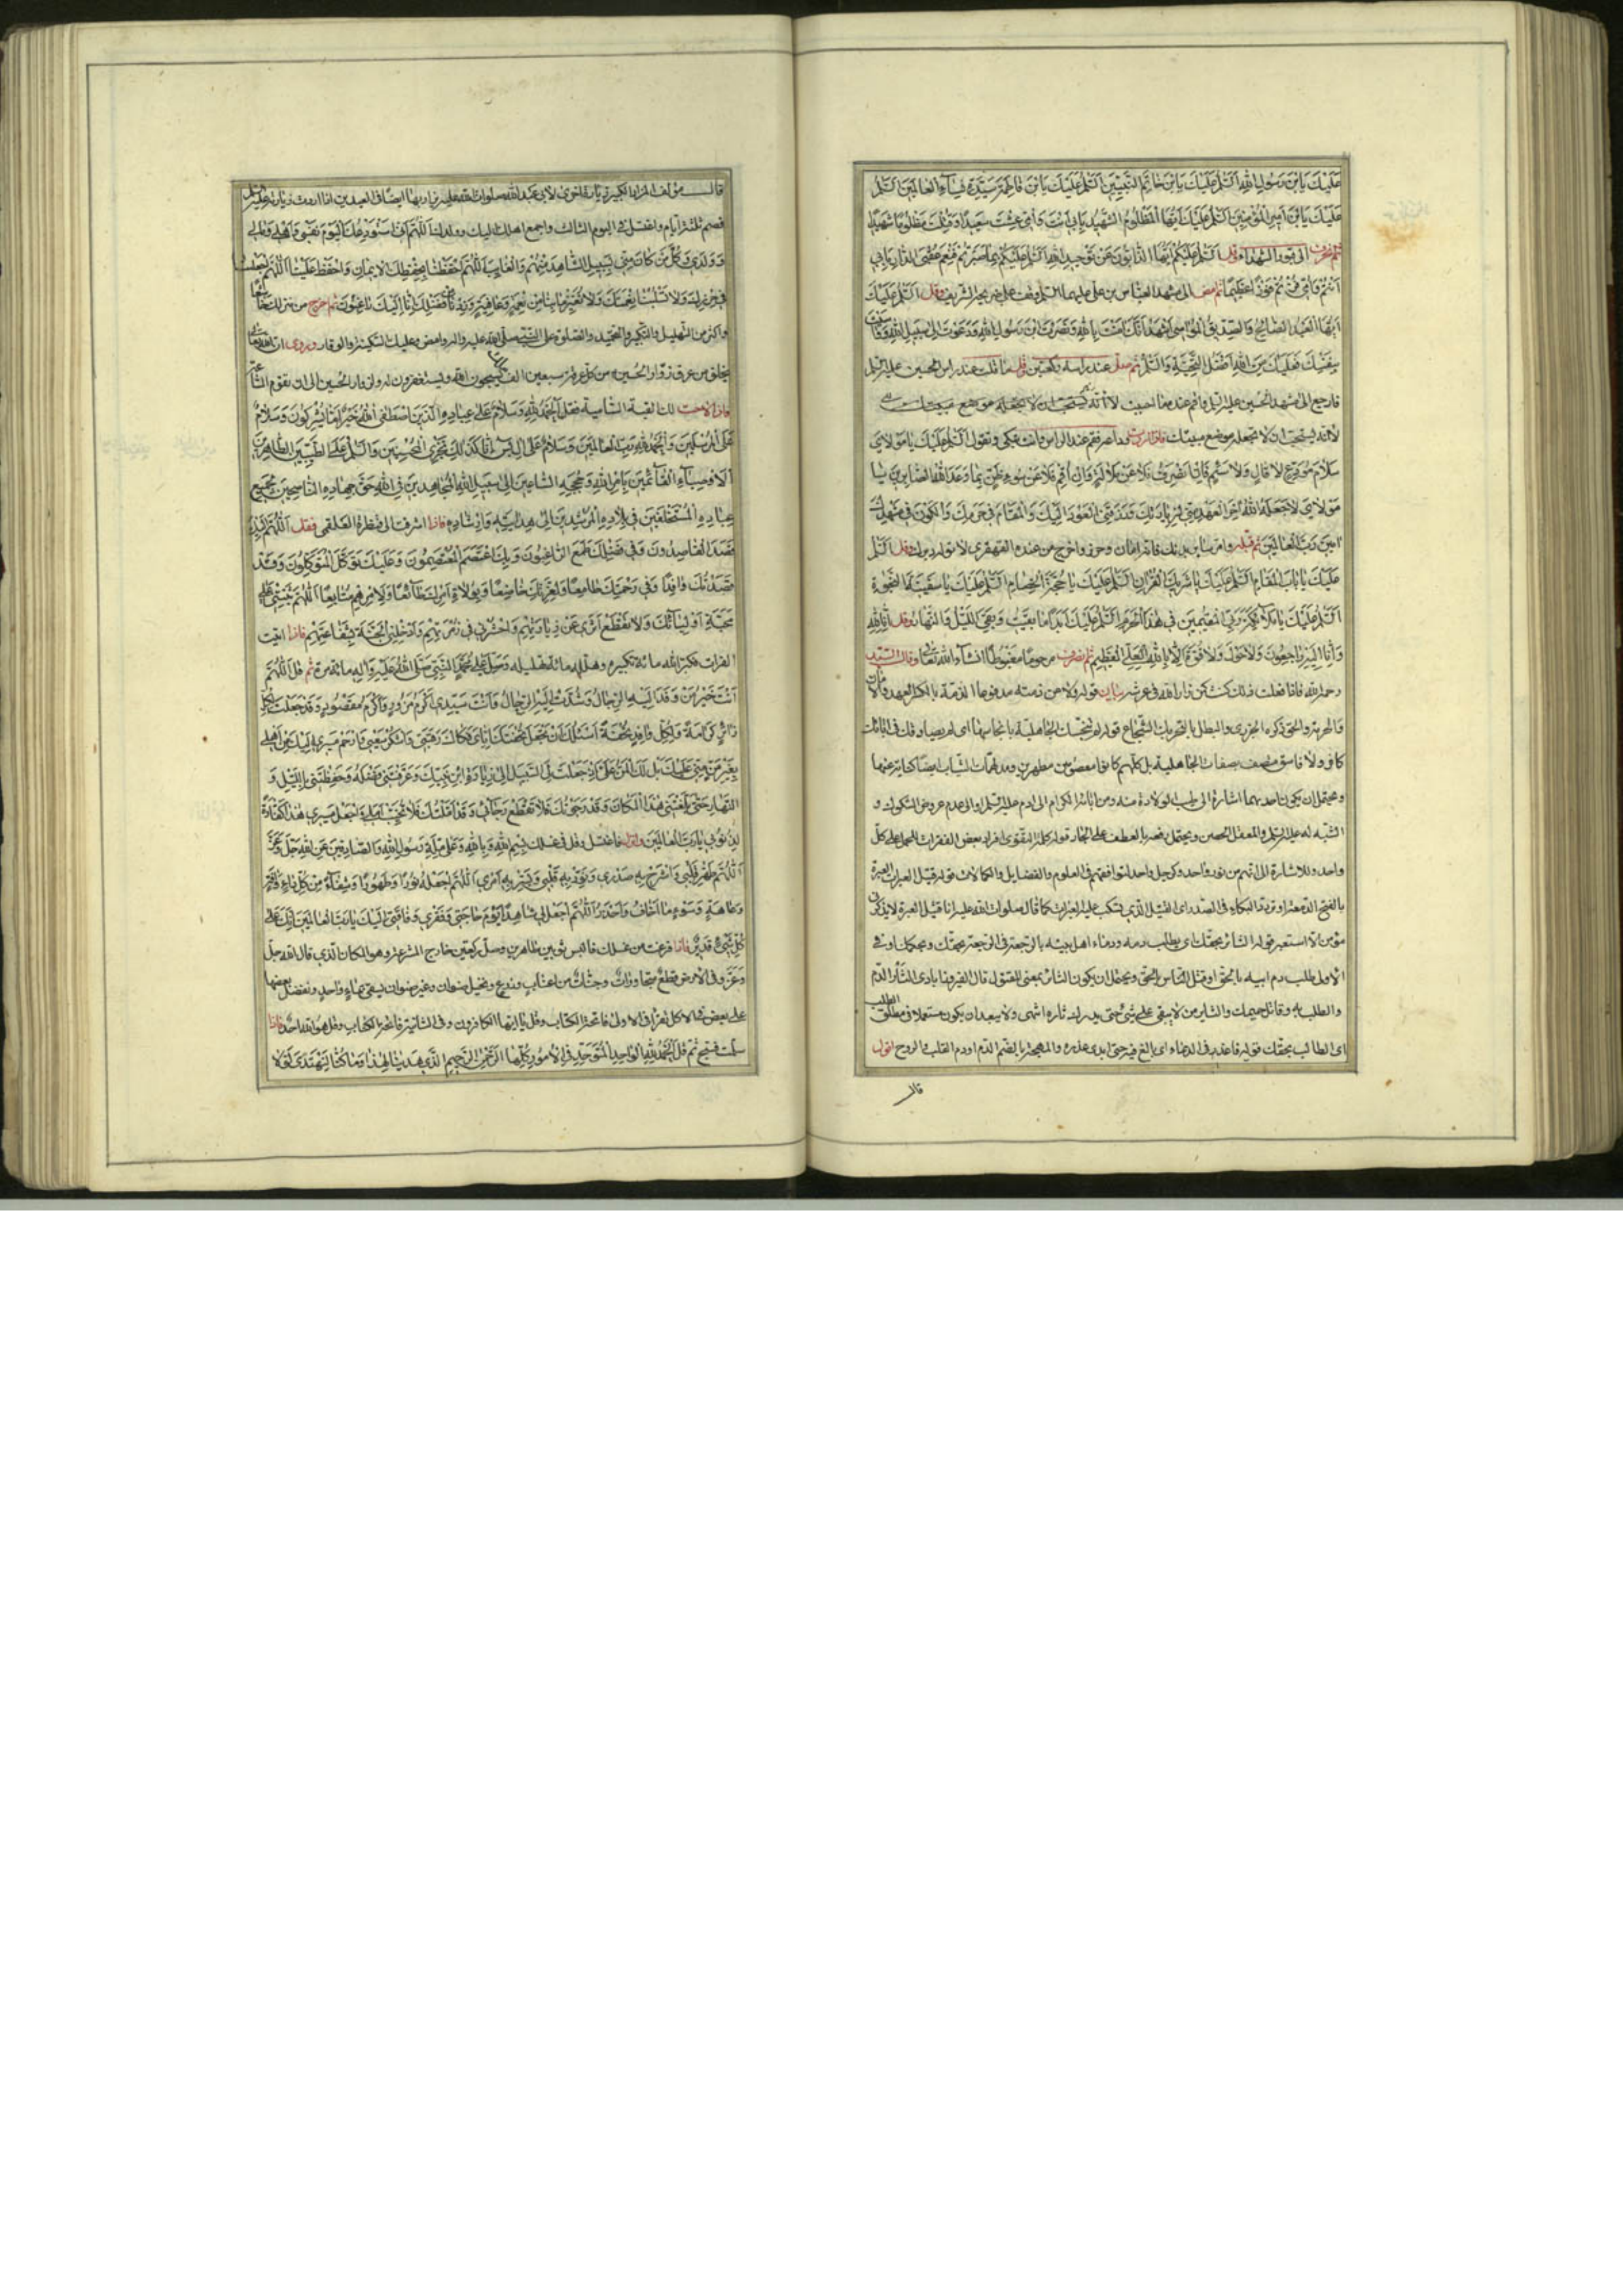 عَلَيْكَ يَابْنَ رَسُولِ اللهِ اَلسَّلَمُ عَلَيْكَ يَابْنَ خَاتَمِ النَّبِيِّينَ اَلسَّلَمُ عَلَيْكَ يَابْنَ فَاطِمَةَ سَيِّدَةِ نِسَاءِ الْعَالَمِينَ اَلسَّلَمُ
عَلَيْكَ يَابْنَ اَمِيرِ الْمُؤْمِنِينَ اَلسَّلَمُ عَلَيْكَ اَيُّهَا الْمَظْلُومُ الشَّهِيدُ بِاَبِي اَنْتَ وَاُمِّي عِشْتَ سَعِيداً وَقُتِلْتَ مَظْلُومًا شَهِيداً
ثم انحرف الى قبور الشهداء وقل اَلسَّلَمُ عَلَيْكُمْ اَيُّهَا الذَّابُّونَ عَنْ تَوْحِيدِ اللهِ اَلسَّلَمُ عَلَيْكُمْ بِمَا صَبَرْتُمْ فَنِعْمَ عُقْبَى الدَّارِ بِاَبِي
اَنْتُمْ وَاُمِّي فُزْتُمْ فَوْزًا عَظِيمًا ثم امض الى مشهد العباس بن علي عليهما السلم وقف على ضريحه الشريف وقل اَلسَّلَمُ عَلَيْكَ
اَيُّهَا الْعَبْدُ الصَّالِحُ وَالصِّدِّيقُ الْمُوَاسِي اَشْهَدُ اَنَّكَ اٰمَنْتَ بِاللهِ وَنَصَرْتَ ابْنَ رَسُولِ اللهِ وَدَعَوْتَ اِلَى سَبِيلِ اللهِ وَوَاسَيْتَ
بِنَفْسِكَ فَعَلَيْكَ مِنَ اللهِ اَفْضَلُ التَّحِيَّةِ وَالسَّلَمُ ثم صل عند راسه ركعتين وقل ما قلت عند راس الحسين عليه السلم
فارجع الى مشهد الحسين عليه السلم واقم عنده ما احببت الا انه يستحب ان لا تجعله موضع مبيتك
لانه يستحب ان لا تجعله موضع مبيتك فاذا اردت وداعه فقم عند الراس وانت تبكي وتقول اَلسَّلَمُ عَلَيْكَ يَا مَوْلَايَ
سَلَامَ مُوَدِّعٍ لَا قَالٍ وَلَا سَئِمٍ فَاِنْ اَنْصَرِفْ فَلَا عَنْ مَلَالَةٍ وَاِنْ اُقِمْ فَلَا عَنْ سُوءِ ظَنٍّ بِمَا وَعَدَ اللهُ الصَّابِرِينَ يَا
مَوْلَايَ لَا جَعَلَهُ اللهُ اٰخِرَ الْعَهْدِ مِنِّي لِزِيَارَتِكَ وَرَزَقَنِي الْعَوْدَ اِلَيْكَ وَالْمَقَامَ فِي حَرَمِكَ وَالْكَوْنَ فِي مَشْهَدِكَ
اٰمِينَ رَبَّ الْعَالَمِينَ ثم قبله وامر سائر بدنك فانه امان وحرز واخرج من عنده القهقرى لا توله دبرك وقل اَلسَّلَمُ
عَلَيْكَ يَا بَابَ الْمَقَامِ اَلسَّلَمُ عَلَيْكَ يَا شَرِيكَ الْقُرْاٰنِ اَلسَّلَمُ عَلَيْكَ يَا حُجَّةَ الْخِصَامِ اَلسَّلَمُ عَلَيْكَ يَا سَفِينَةَ النَّجٰوةِ
اَلسَّلَمُ عَلَيْكُمْ يَا مَلَائِكَةَ رَبِّي الْمُقِيمِينَ فِي هٰذَا الْحَرَمِ اَلسَّلَمُ عَلَيْكَ اَبَدًا مَا بَقِيتُ وَبَقِيَ اللَّيْلُ وَالنَّهَارُ وقل اِنَّا لِلهِ
وَاِنَّا اِلَيْهِ رَاجِعُونَ وَلَا حَوْلَ وَلَا قُوَّةَ اِلَّا بِاللهِ الْعَلِيِّ الْعَظِيمِ ثم تنصرف مرحوما مغبوطا انشاء الله تعالى وقال السيد
رحمه الله فاذا فعلت ذلك كنت كمن زار الله في عرشه بيان قوله ولا من ذمته مدفوعها الذمة بالكسر العهد والامان
والحرمة والحق ذكره الجزري والبطل بالتحريك الشجاع قوله لم تنجسك الجاهلية بانجاسها اي لم يصبا وقك في ابائك
كافر ولا فاسق متصف بصفات الجاهلية بل كلهم كانوا معصومين مطهرين ومدلهمات الثياب ايضا كناية عنها
ويحتمل ان يكون احديهما اشارة الى طيب الولادة منه ومن ابائه الكرام الى ادم عليه السلم والى عدم عروض الشكوك و
الشبه له عليه السلم والمعقل الحصن ويحتمل بقصر بالعطف على الجار قوله كلمة التقوى افراد بعض الفقرات للحمل على كل
واحد وللاشارة الى انهم من نور واحد وكرجل واحد لتوافقهم في العلوم والفضايل والكمالات قوله قتيل العبرات العبرة
بالفتح الدمعة او تردد البكاء في الصدر اي القتيل الذي تسكب عليه العبرات كما قال صلوات الله عليه انا قتيل العبرة لا يذكرني
مؤمن الا استعبر قوله الثائر بحقك اي يطلب دمه ودماء اهل بيته بالرجعة في الرجعة بحقك وبحكمك او في
الاول طلب دم ابيه بالحق او قتل الناس بالحق ويحتمل ان يكون الثائر بمعنى المقتول قال الفيروزابادى الثَّأْرُ الدم
والطلب به وقاتل حميمك والثاير من لا يبقي على شئ حتى يدرك ثاره انتهى ولا يبعد ان يكون مستعملا في مطلق الطلب
اى الطالب بحقك قوله فاعذر في الدعاء اي بالغ فيه حتى ابدى عذره والمهجة بالضم الدم او دم القلب والروح اقول
قال
قال مؤلف المزار الكبير زيارة اخرى لابي عبد الله صلوات الله عليه يزار بها ايضا في العيدين اذا اردت زيارته عليه السلم
فصم ثلثة ايام واغتسل في اليوم الثالث واجمع اهلك اليك وولدك وقل اَللّٰهُمَّ اِنِّي اَسْتَوْدِعُكَ الْيَوْمَ نَفْسِي وَاَهْلِي وَمَالِي
وَوَلَدِي وَكُلَّ مَنْ كَانَ مِنِّي بِسَبِيلٍ الشَّاهِدَ مِنْهُمْ وَالْغَائِبَ اَللّٰهُمَّ احْفَظْنَا بِحِفْظِ الْاِيمَانِ وَاحْفَظْ عَلَيْنَا اَللّٰهُمَّ اجْعَلْنَا
فِي حِرْزِكَ وَلَا تَسْلُبْنَا نِعْمَتَكَ وَلَا تُغَيِّرْ مَا بِنَا مِنْ نِعْمَةٍ وَعَافِيَةٍ وَزِدْنَا مِنْ فَضْلِكَ اِنَّا اِلَيْكَ رَاغِبُونَ ثم اخرج من منزلك خاشعًا
واكثر من التهليل والتكبير والتحميد والصلوة على النبي صلى الله عليه واله وامض وعليك السكينة والوقار وروي ان الله تعالى
يخلق من عرق زوار الحسين من كل عرقة سبعين الف ملك يسبحون الله ويستغفرون له ولزوار الحسين الى ان تقوم الساعة
فاذا لاحت لك القبة السامية فقل اَلْحَمْدُ لِلهِ وَسَلَامٌ عَلَى عِبَادِهِ الَّذِينَ اصْطَفَى اٰللهُ خَيْرٌ اَمَّا يُشْرِكُونَ وَسَلَامٌ
عَلَى الْمُرْسَلِينَ وَالْحَمْدُ لِلهِ رَبِّ الْعَالَمِينَ وَسَلَامٌ عَلَى اٰلِ يٰسٓ اِنَّا كَذٰلِكَ نَجْزِي الْمُحْسِنِينَ وَالسَّلَمُ عَلَى الطَّيِّبِينَ الطَّاهِرِينَ
اَلْاَوْصِيَاءِ الْقَائِمِينَ بِاَمْرِ اللهِ وَحُجَجِهِ السَّاعِينَ اِلَى سَبِيلِ اللهِ الْمُجَاهِدِينَ فِي اللهِ حَقَّ جِهَادِهِ النَّاصِحِينَ لِجَمِيعِ
عِبَادِهِ الْمُسْتَخْلَفِينَ فِي بِلَادِهِ الْمُرْشِدِينَ اِلَى هِدَايَتِهِ وَاِرْشَادِهِ فاذا اشرفت الى قنطرة العلقمي فقل اَللّٰهُمَّ اِلَيْكَ
قَصَدَ الْقَاصِدُونَ وَفِي فَضْلِكَ طَمَعَ الرَّاغِبُونَ وَبِكَ اعْتَصَمَ الْمُعْتَصِمُونَ وَعَلَيْكَ تَوَكَّلَ الْمُتَوَكِّلُونَ وَقَدْ
قَصَدْتُكَ وَافِدًا وَفِي رَحْمَتِكَ طَامِعًا وَلِعِزَّتِكَ خَاضِعًا وَلِوُلَاةِ اَمْرِكَ طَائِعًا وَلِاَمْرِهِمْ مُتَابِعًا اَللّٰهُمَّ ثَبِّتْنِي عَلَى
مَحَبَّةِ اَوْلِيَائِكَ وَلَا تَقْطَعْ اَثَرِي عَنْ زِيَارَتِهِمْ وَاحْشُرْنِي فِي زُمْرَتِهِمْ وَاَدْخِلْنِي الْجَنَّةَ بِشَفَاعَتِهِمْ فاذا اتيت
الفرات فكبر الله مائة تكبيره وهلله مائة تهليله وَصَلِّ عَلَى مُحَمَّدٍ النَّبِيِّ صَلَّى اللهُ عَلَيْهِ وَاٰلِهِ مائة مرة ثم قل اَللّٰهُمَّ
اَنْتَ خَيْرُ مَنْ وَفَدَ اِلَيْهِ الرِّجَالُ وَشُدَّتْ اِلَيْهِ الرِّحَالُ وَاَنْتَ سَيِّدِي اَكْرَمُ مَزُورٍ وَاَكْرَمُ مَقْصُودٍ وَقَدْ جَعَلْتَ لِكُلِّ
زَائِرٍ كَرَامَةً وَلِكُلِّ وَافِدٍ تُحْفَةً اَسْئَلُكَ اَنْ تَجْعَلَ تُحْفَتَكَ اِيَّايَ فَكَاكَ رَقَبَتِي وَاشْكُرْ سَعْيِي وَارْحَمْ مَسِيرِي اِلَيْكَ مِنْ اَهْلِي
بِغَيْرِ مَنٍّ مِنِّي عَلَيْكَ بَلْ لَكَ الْمَنُّ عَلَيَّ اِذْ جَعَلْتَ لِيَ السَّبِيلَ اِلَى زِيَارَةِ ابْنِ نَبِيِّكَ وَعَرَّفْتَنِي فَضْلَهُ وَحَفِظْتَنِي بِاللَّيْلِ وَ
النَّهَارِ حَتَّى بَلَّغْتَنِي هٰذَا الْمَكَانَ وَقَدْ رَجَوْتُكَ فَلَا تَقْطَعْ رَجَائِي وَقَدْ اَمَّلْتُكَ فَلَا تُخَيِّبْ اَمَلِي وَاجْعَلْ مَسِيرِي هٰذَا كَفَّارَةً
لِذُنُوبِي يَا رَبَّ الْعَالَمِينَ فاغتسل وقل في غسلك بِسْمِ اللهِ وَبِاللهِ وَعَلَى مِلَّةِ رَسُولِ اللهِ وَالصَّادِقِينَ عَنِ اللهِ جَلَّ وَعَزَّ
اَللّٰهُمَّ طَهِّرْ قَلْبِي وَاشْرَحْ بِهِ صَدْرِي وَنَوِّرْ بِهِ قَلْبِي وَيَسِّرْ بِهِ اَمْرِي اَللّٰهُمَّ اجْعَلْهُ نُورًا وَطَهُورًا وَشِفَاءً مِنْ كُلِّ دَاءٍ وَاٰفَةٍ
وَعَاهَةٍ وَسُوءِ مَا اَخَافُ وَاَحْذَرُ اَللّٰهُمَّ اجْعَلْ لِي شَاهِدًا يَوْمَ حَاجَتِي وَفَقْرِي وَفَاقَتِي اِلَيْكَ يَا رَبَّ الْعَالَمِينَ اِنَّكَ عَلَى
كُلِّ شَيْءٍ قَدِيرٌ فاذا فرغت من غسلك فالبس ثوبين طاهرين وصل ركعتين خارج المشرعة وهو المكان الذي قال الله جل
وَعَزَّ وَفِي الْاَرْضِ قِطَعٌ مُتَجَاوِرَاتٌ وجنات من اعناب وزرع ونخيل صنوان وغير صنوان يسقى بماء واحد ونفضل بعضها
على بعض في الاكل تقرا في الاولى فاتحة الكتاب وقل يا ايها الكافرون وفي الثانية فاتحة الكتاب وقل هو الله احد فاذا
سلمت فسبح ثم قل اَلْحَمْدُ لِلهِ الْوَاحِدِ الْمُتَوَحِّدِ فِي الْاُمُورِ كُلِّهَا الرَّحْمٰنِ الرَّحِيمِ الَّذِي هَدَيٰنَا لِهٰذَا وَمَا كُنَّا لِنَهْتَدِيَ لَوْلَا